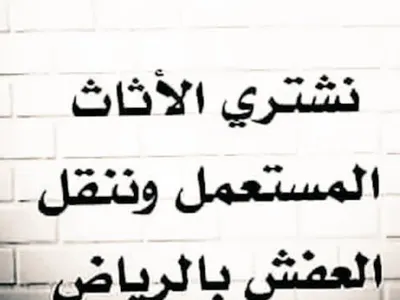 نشتري الأثاث
المستعمل وننقل
العفش بالرياض